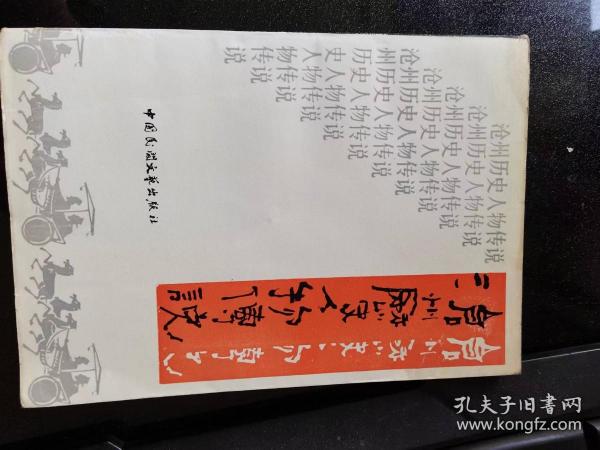 沧州历史人物传说
沧州历史人物传说
沧州历史人物传说
沧州历史人物传说
沧州历史人物传说
州历史人物传说
历史人物传说
史人物传说
人物传说
物传说
传说
说
中国民间文艺出版社
孔夫子旧书网
www.kongfz.com